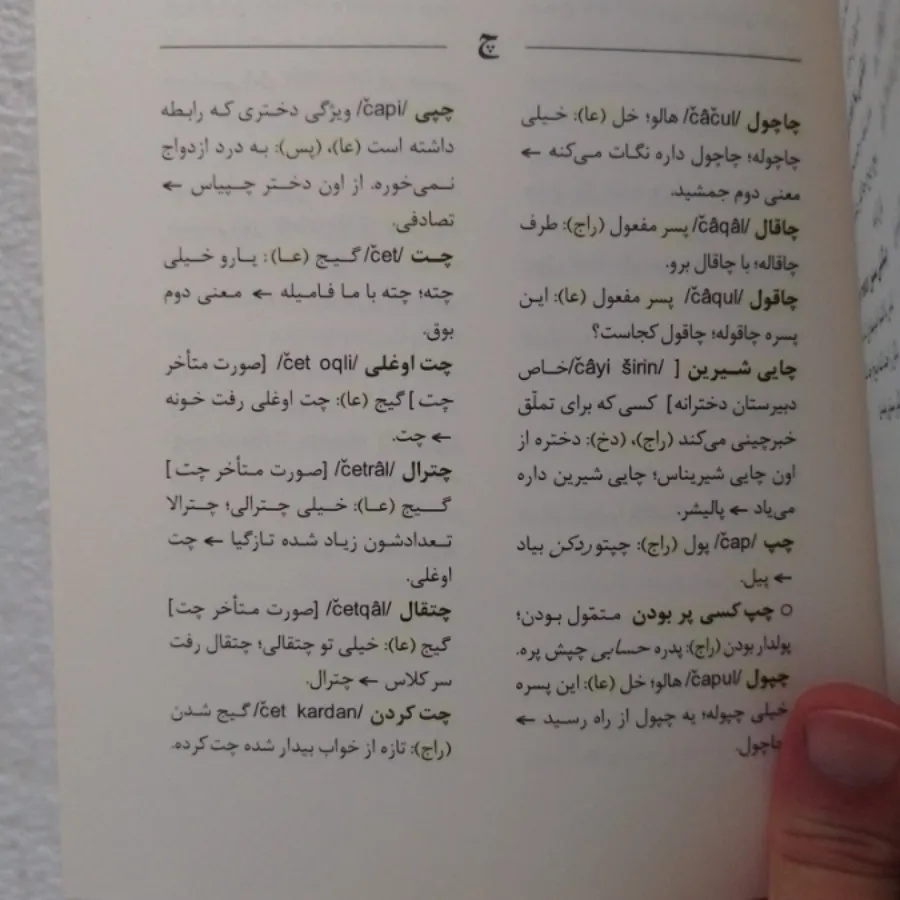 چ
چاچول /čâčul/ هالو؛ خل (عا): خیلی
چاچوله؛ چاچول داره نگات می‌کنه ←
معنی دوم جمشید.
چاقال /čâqâl/ پسر مفعول (راج): طرف
چاقاله؛ با چاقال برو.
چاقول /čâqul/ پسر مفعول (عا): این
پسره چاقوله؛ چاقول کجاست؟
چایی شیرین [ /čâyi širin/خاص
دبیرستان دخترانه] کسی که برای تملّق
خبرچینی می‌کند (راج)، (دخ): دختره از
اون چایی شیریناس؛ چایی شیرین داره
می‌یاد ← پالیشر.
چپ /čap/ پول (راج): چپتو ردکن بیاد
← پیل.
○ چپ کسی پر بودن متموّل بودن؛
پولدار بودن (راج): پدره حسابی چپش پره.
چپول /čapul/ هالو؛ خل (عا): این پسره
خیلی چپوله؛ یه چپول از راه رسید ←
چاچول.
چپی /čapi/ ویژگی دختری که رابطه
داشته است (عا)، (پس): به درد ازدواج
نمی‌خوره. از اون دختر چپیاس ←
تصادفی.
چت /čet/ گیج (عا): یارو خیلی
چته؛ چته با ما فامیله ← معنی دوم
بوق.
چت اوغلی /čet oqli/ [صورت متأخر
چت] گیج (عا): چت اوغلی رفت خونه
← چت.
چترال /četrâl/ [صورت متأخر چت]
گیج (عا): خیلی چترالی؛ چترالا
تعدادشون زیاد شده تازگیا ← چت
اوغلی.
چتقال /četqâl/ [صورت متأخر چت]
گیج (عا): خیلی تو چتقالی؛ چتقال رفت
سر کلاس ← چترال.
چت کردن /čet kardan/ گیج شدن
(راج): تازه از خواب بیدار شده چت کرده.